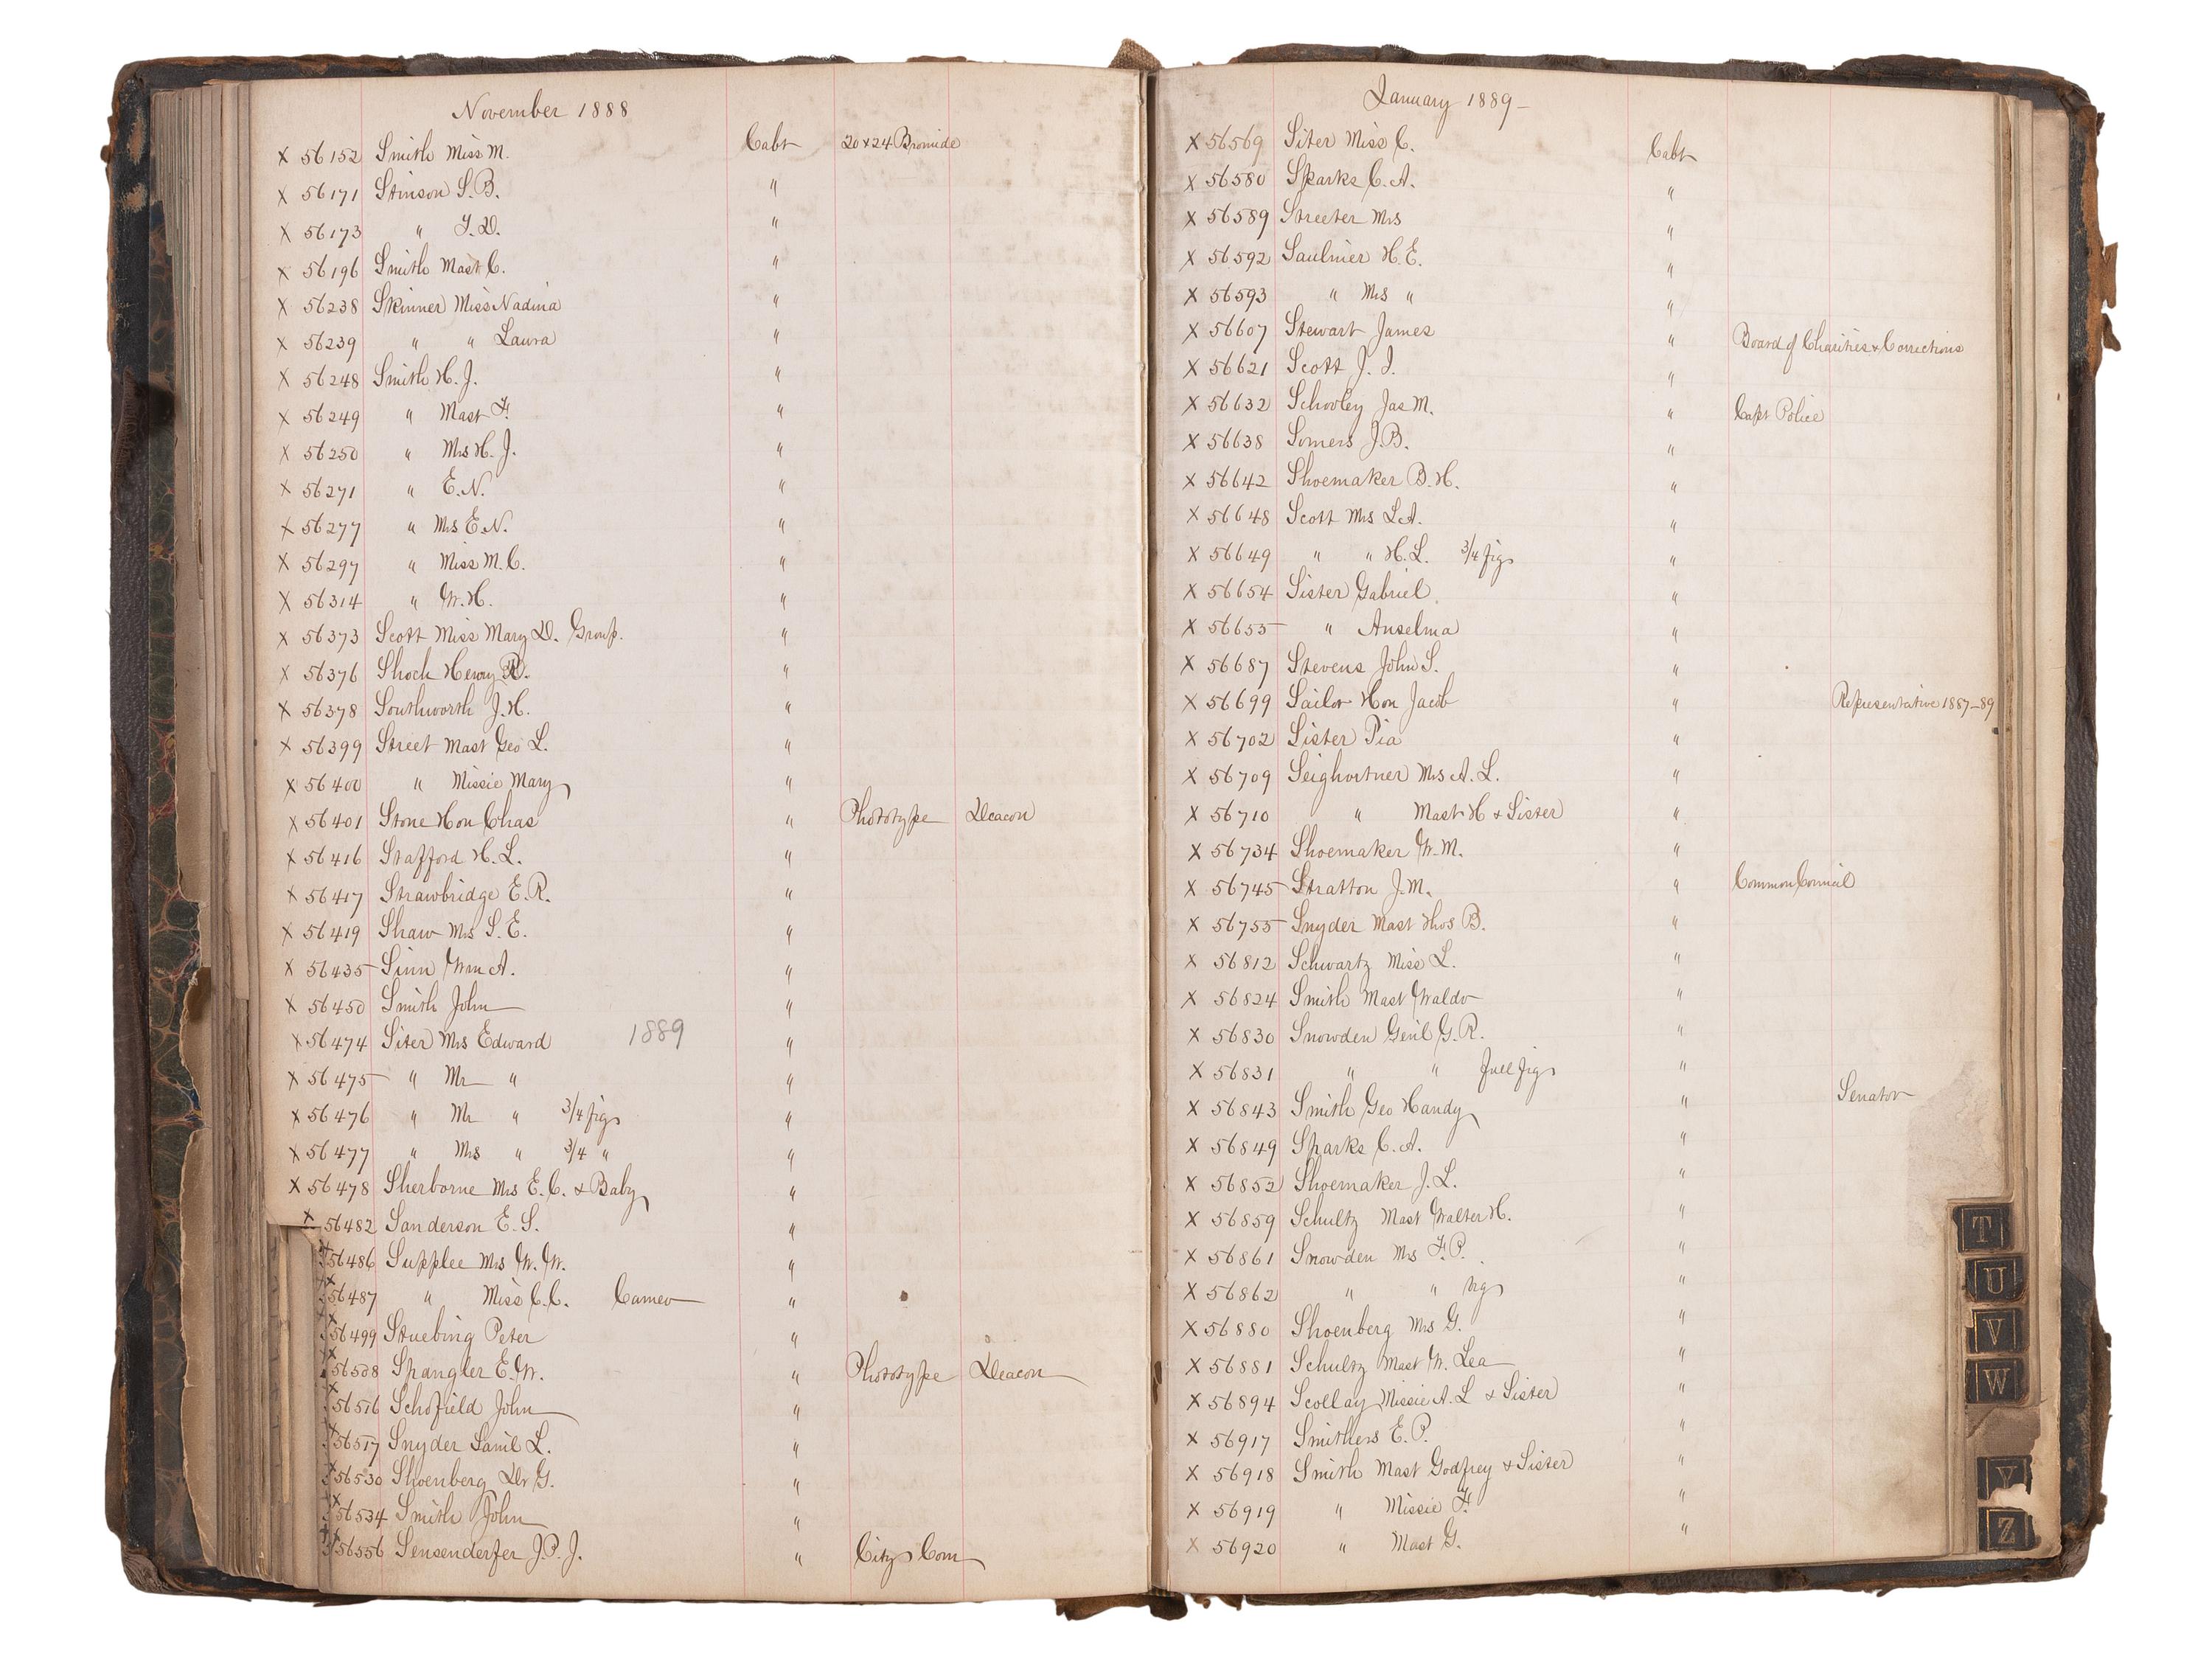 November 1888
X 56152 Smith Miss M. Cabt 20x24 Bromide
X 56171 Stinson S. B. "
X 56173 " T. D. "
X 56196 Smith Mast C. "
X 56238 Skinner Miss Nadina "
X 56239 " " Laura "
X 56248 Smith H. J. "
X 56249 " Mast F. "
X 56250 " Mrs H. J. "
X 56271 " E. N. "
X 56277 " Mrs E. N. "
X 56297 " Miss M. C. "
X 56314 " W. H. "
X 56373 Scott Miss Mary D. Group. "
X 56376 Shock Henry R. "
X 56378 Southworth J. H. "
X 56399 Street Mast Geo L. "
X 56400 " Missie Mary "
X 56401 Stone Hon Chas " Phototype Deacon
X 56416 Stafford H. L. "
X 56417 Strawbridge E. R. "
X 56419 Shaw Mrs S. E. "
X 56435 Sinn Wm A. "
X 56450 Smith John "
X 56474 Siter Mrs Edward 1889 "
X 56475 " Mr " "
X 56476 " Mr " 3/4 fig "
X 56477 " Mrs " 3/4 " "
X 56478 Sherborne Mrs E. C. & Baby "
X 56482 Sanderson E. S. "
X 56486 Supplee Mrs W. W. "
X 56487 " Miss C. C. Cameo "
X 56499 Stuebing Peter "
X 56508 Spangler E. W. " Phototype Deacon
X 56516 Schofield John "
X 56517 Snyder Saml L. "
X 56530 Shoenberg Dr G. "
X 56534 Smith John "
X 56556 Sensenderfer J. P. J. " City Com
January 1889-
X 56569 Siter Miss C. Cabt
X 56580 Sparks C. A. "
X 56589 Streeter Mrs "
X 56592 Saulnier H. E. "
X 56593 " Mrs " "
X 56607 Stewart James " Board of Charities & Corrections
X 56621 Scott J. I. "
X 56632 Schooley Jas M. " Capt Police
X 56638 Somers J. B. "
X 56642 Shoemaker B. H. "
X 56648 Scott Mrs L. A. "
X 56649 " " H. L. 3/4 fig "
X 56654 Sister Gabriel "
X 56655 " Anselma "
X 56687 Stevens John S. "
X 56699 Sailor Hon Jacob " Representative 1887-89
X 56702 Sister Pia "
X 56709 Seighortner Mrs A. L. "
X 56710 " Mast H & Sister "
X 56734 Shoemaker W. M. "
X 56745 Stratton J. M. " Common Council
X 56755 Snyder Mast Thos B. "
X 56812 Schwartz Miss L. "
X 56824 Smith Mast Waldo "
X 56830 Snowden Genl G. R. "
X 56831 " " full fig "
X 56843 Smith Geo Handy " Senator
X 56849 Sparks C. A. "
X 56852 Shoemaker J. L. "
X 56859 Schultz Mast Walter H. "
X 56861 Snowden Mrs F. P. "
X 56862 " " "
X 56880 Shoenberg Mrs G. "
X 56881 Schultz Mast W. Lea "
X 56894 Scollay Missie A. L & Sister "
X 56917 Smithers E. P. "
X 56918 Smith Mast Godfrey & Sister "
X 56919 " Missie F. "
X 56920 " Mast G. "
T
U
V
W
Y
Z